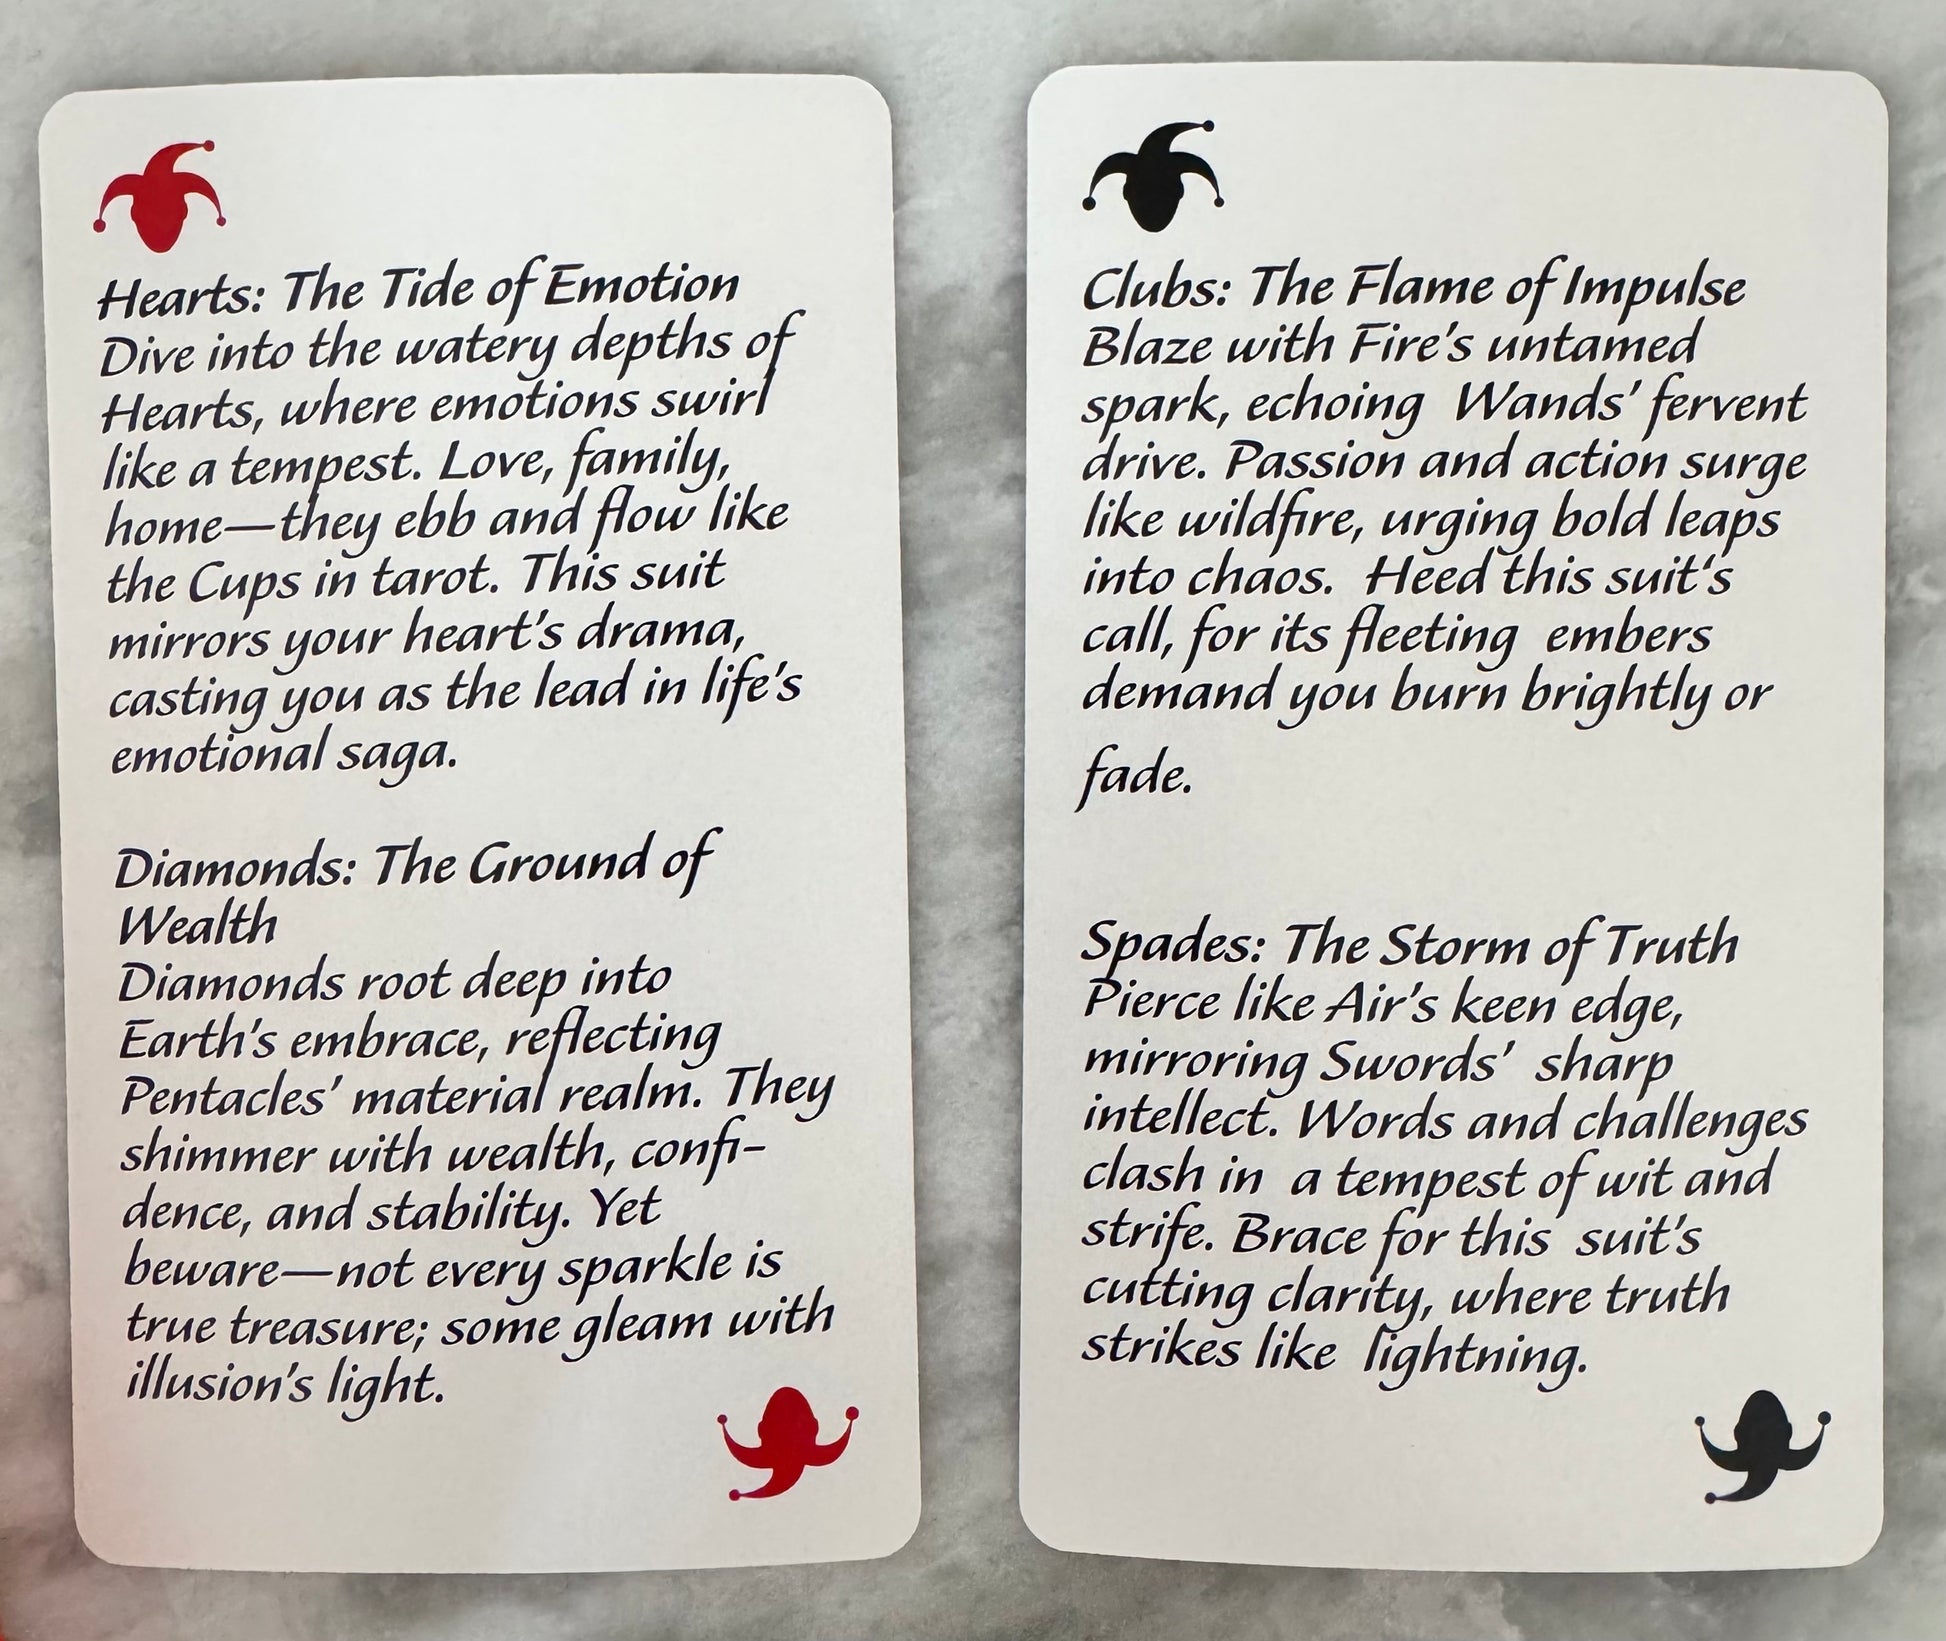 Hearts: The Tide of Emotion
Dive into the watery depths of
Hearts, where emotions swirl
like a tempest. Love, family,
home—they ebb and flow like
the Cups in tarot. This suit
mirrors your heart's drama,
casting you as the lead in life's
emotional saga.
Diamonds: The Ground of
Wealth
Diamonds root deep into
Earth's embrace, reflecting
Pentacles' material realm. They
shimmer with wealth, confi-
dence, and stability. Yet
beware—not every sparkle is
true treasure; some gleam with
illusion's light.
Clubs: The Flame of Impulse
Blaze with Fire's untamed
spark, echoing  Wands' fervent
drive. Passion and action surge
like wildfire, urging bold leaps
into chaos.  Heed this suit‘s
call, for its fleeting  embers
demand you burn brightly or
fade.
Spades: The Storm of Truth
Pierce like Air's keen edge,
mirroring Swords'  sharp
intellect. Words and challenges
clash in  a tempest of wit and
strife. Brace for this  suit's
cutting clarity, where truth
strikes like  lightning.